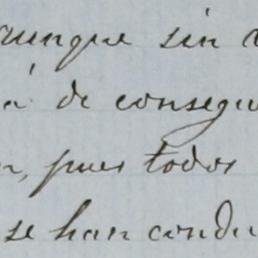 aunque sin
á de consegu
n, pues todos
se han condu